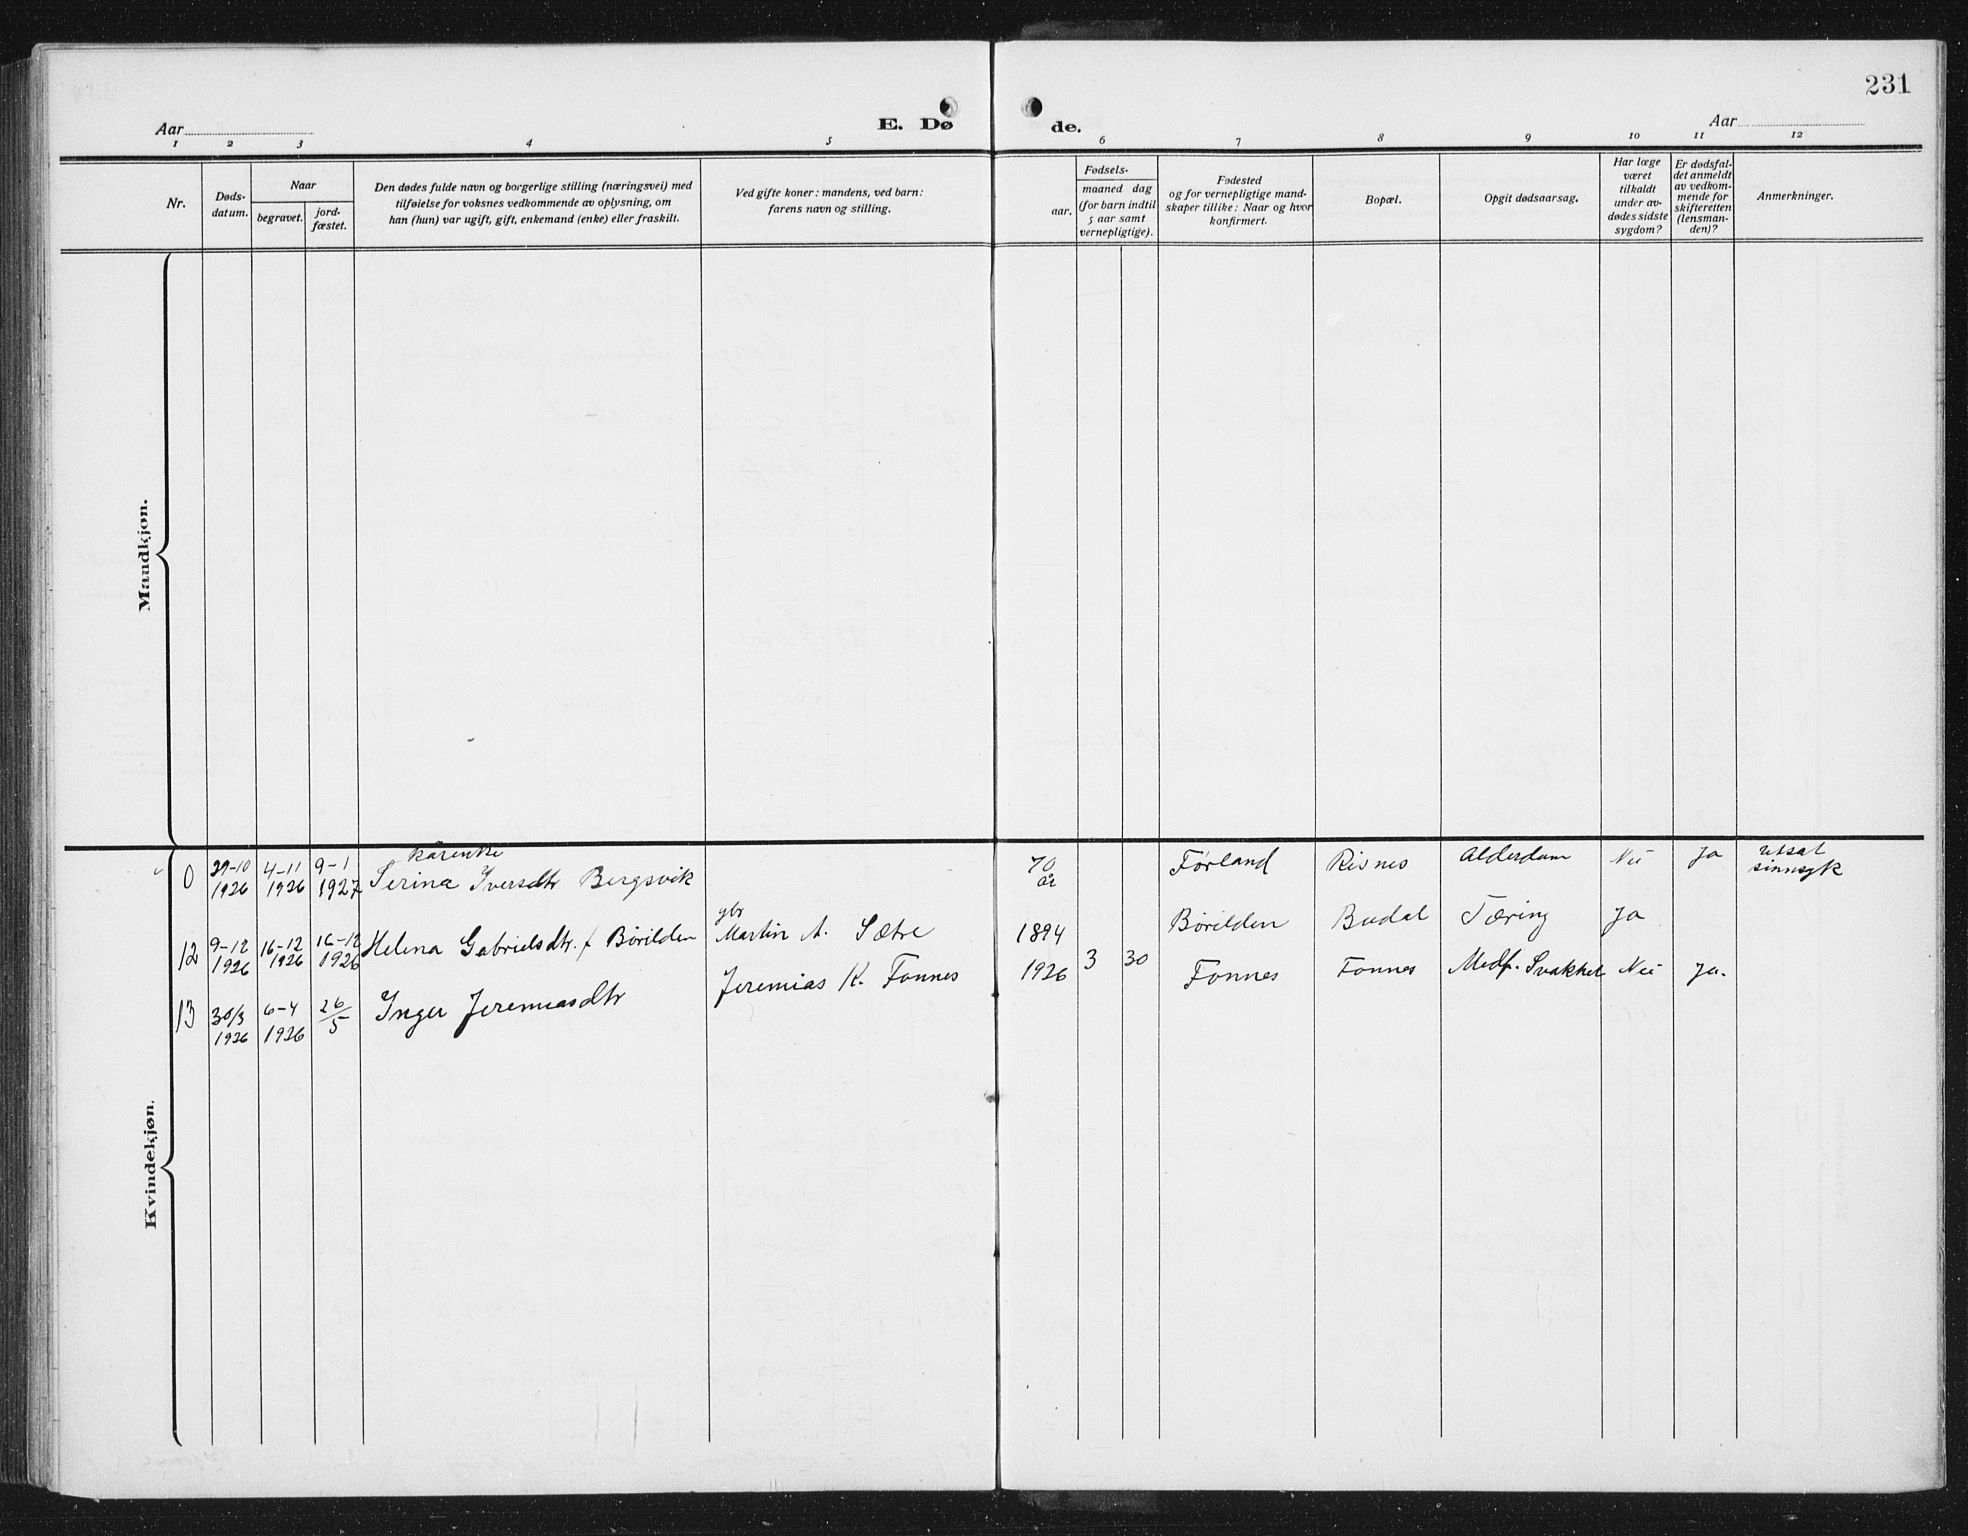 231
Aar
E. Dø
de.
Aar
1 2 3 4 5 6 7 8 9 10 11 12
Nr.
Døds-
datum.
Naar
begravet.
jord-
fæstet.
Den dødes fulde navn og borgerlige stilling (næringsvei) med
tilføielse for voksnes vedkommende av oplysning, om
han (hun) var ugift, gift, enkemand (enke) eller fraskilt.
Ved gifte koner: mandens, ved barn:
farens navn og stilling.
Fødsels-
aar.
maaned dag
(for barn indtil
5 aar samt
vernepligtige).
Fødested
og for vernepligtige mand-
skaper tillike: Naar og hvor
konfirmert.
Bopæl.
Opgit dødsaarsag.
Har læge
været
tilkaldt
under av-
dødes sidste
sygdom?
Er dødsfal-
det anmeldt
av vedkom-
mende for
skifteretten
(lensman-
den)?
Anmerkninger.
Mandkjøn.
Kvindekjøn.
0
29-10
1926
4-11
1926
9-1
1927
kårenke
Serina Iversdtr Bergsvik
70
år
Førland
Risnes
Alderdom
Nei
Ja
utsat
sinnsyk
12
9-12
1926
16-12
1926
16-12
1926
Helena Gabrielsdtr. f Börilden
gbr
Martin A. Sætre
1894
Börilden
Budal
Tæring
Ja
13
30/3
1926
6-4
1926
26/5
Inger Jeremiasdtr
Jeremias K. Fonnes
1926
3
30
Fonnes
Fonnes
Medf. Svakhet
Nei
Ja.